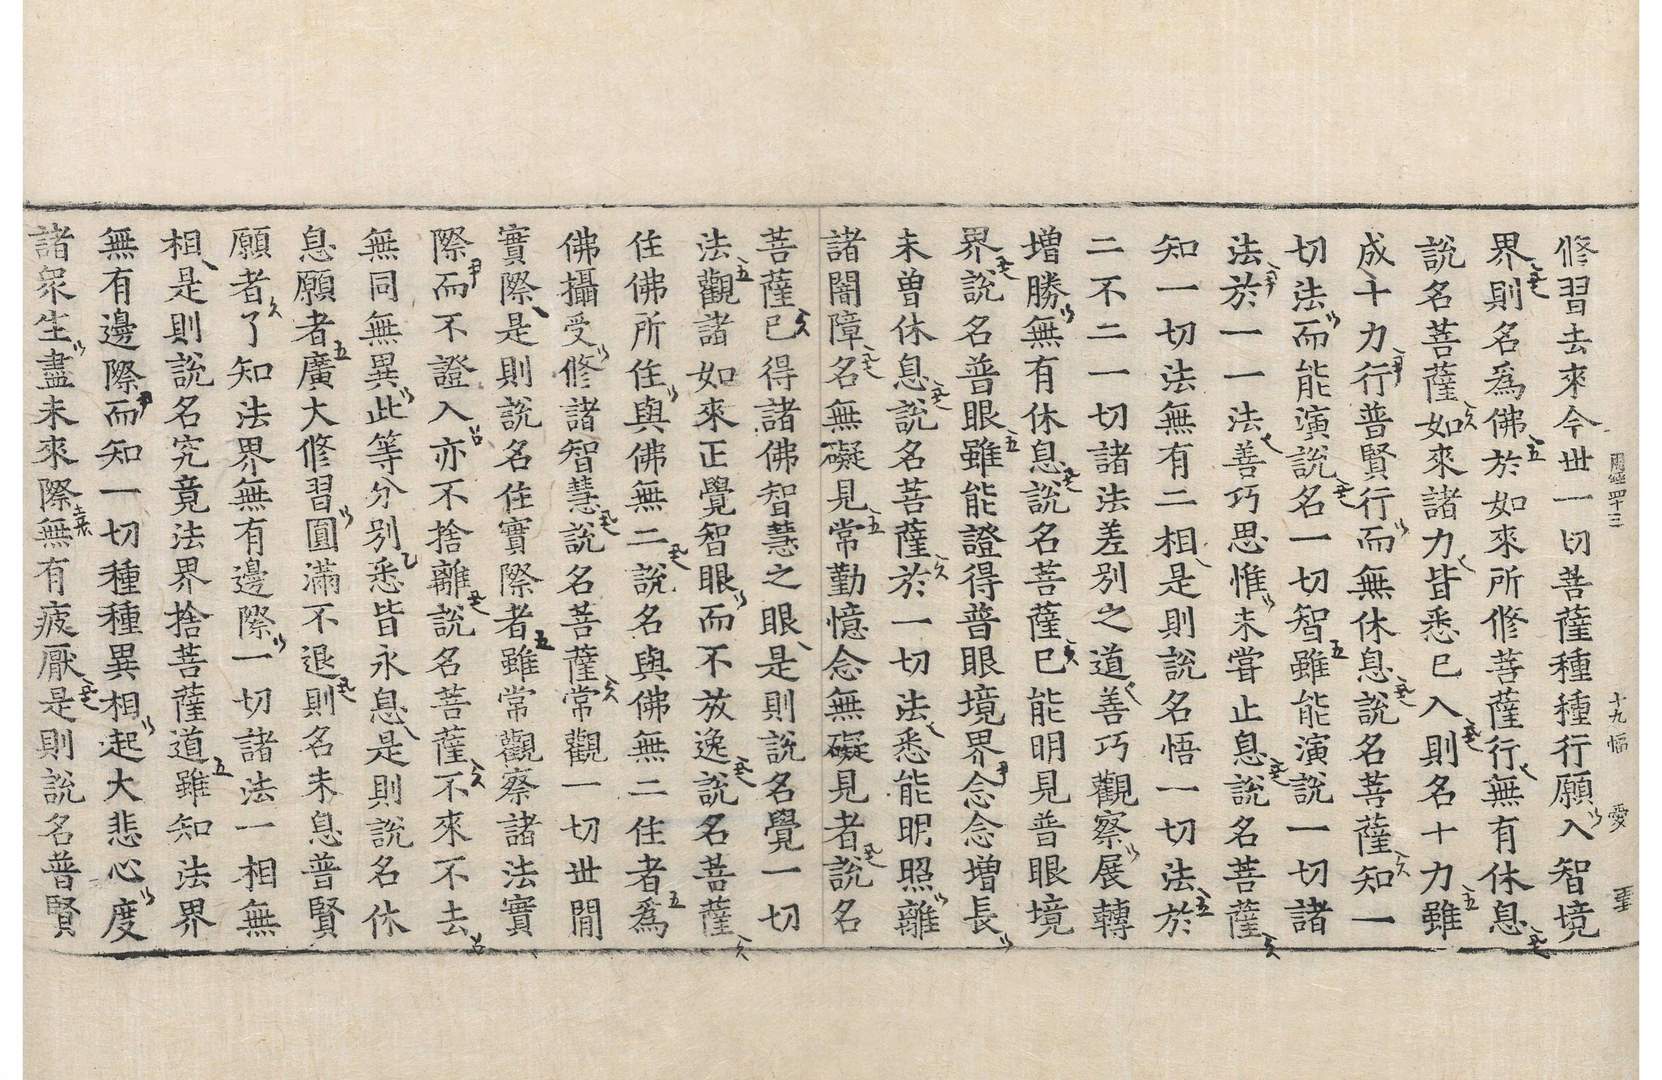 周經四十三 十九幅 愛
修習去來今世一切菩薩種種行願入智境
界則名爲佛於如來所修菩薩行無有休息
說名菩薩如來諸力皆悉已入則名十力雖
成十力行普賢行而無休息說名菩薩知一
切法而能演說名一切智雖能演說一切諸
法於一一法善巧思惟未嘗止息說名菩薩
知一切法無有二相是則說名悟一切法於
二不二一切諸法差別之道善巧觀察展轉
增勝無有休息說名菩薩已能明見普眼境
界說名普眼雖能證得普眼境界念念增長
未曾休息說名菩薩於一切法悉能明照離
諸闇障名無礙見常勤憶念無礙見者說名
菩薩已得諸佛智慧之眼是則說名覺一切
法觀諸如來正覺智眼而不放逸說名菩薩
住佛所住與佛無二說名與佛無二住者爲
佛攝受修諸智慧說名菩薩常觀一切世間
實際是則說名住實際者雖常觀察諸法實
際而不證入亦不捨離說名菩薩不來不去
無同無異此等分別悉皆永息是則說名休
息願者廣大修習圓滿不退則名未息普賢
願者了知法界無有邊際一切諸法一相無
相是則說名究竟法界捨菩薩道雖知法界
無有邊際而知一切種種異相起大悲心度
諸衆生盡未來際無有疲厭是則說名普賢